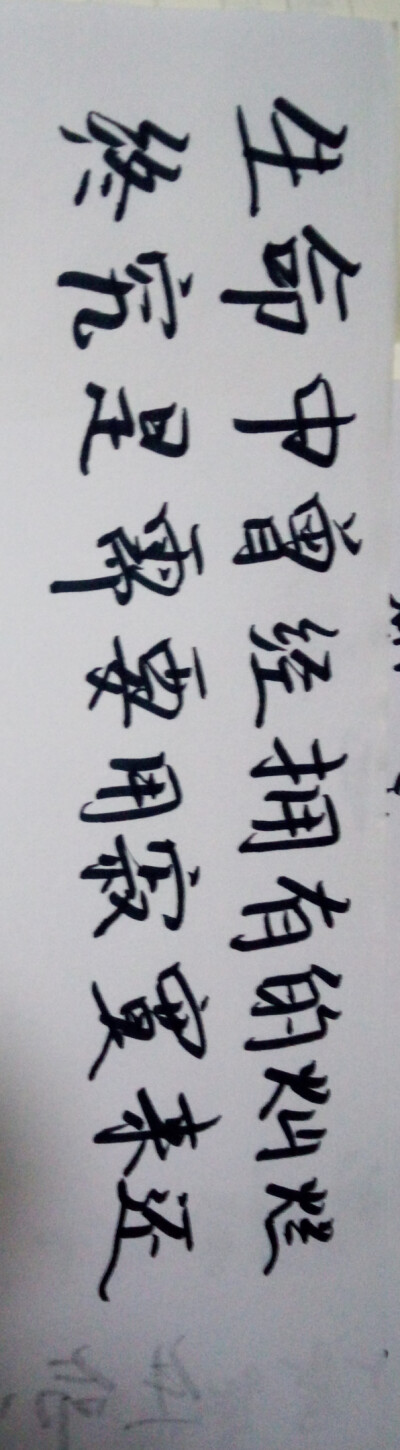 生命中曾经拥有的灿烂
终究是需要用寂寞来还